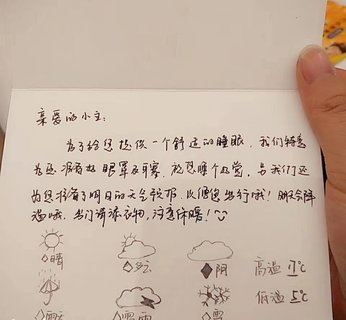 亲爱的小主：
为了给您提供一个舒适的睡眠，我们特意
为您准备好眼罩及耳塞，祝您睡个好觉，另我们还
为您准备了明日的天气预报，以便您出行哦！明天会降
温哦，出门请添衣物，注意保暖！
◇晴 ◇多云 ◆阴 高温 7℃
低温 5℃
◇雷雨 ◇雪